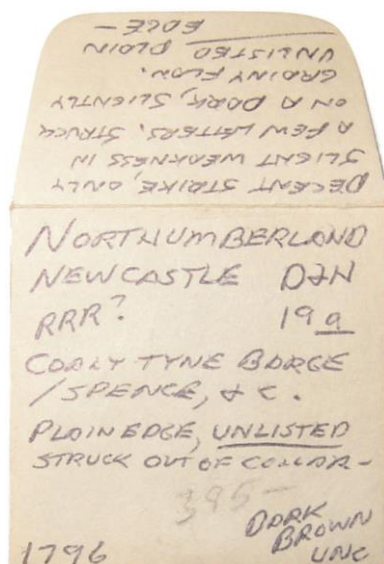 DECENT STRIKE, ONLY
SLIGHT WEAKNESS IN
A FEW LETTERS. STRUCK
ON A DARK, SLIGHTLY
GRAINY FLAN.
UNLISTED PLAIN
EDGE —
NORTHUMBERLAND
NEWCASTLE D&H
RRR? 19a
COALY TYNE BARGE
/SPENCE, & C.
PLAIN EDGE, UNLISTED
STRUCK OUT OF COLLAR —
395—
DARK
BROWN
UNC
1796